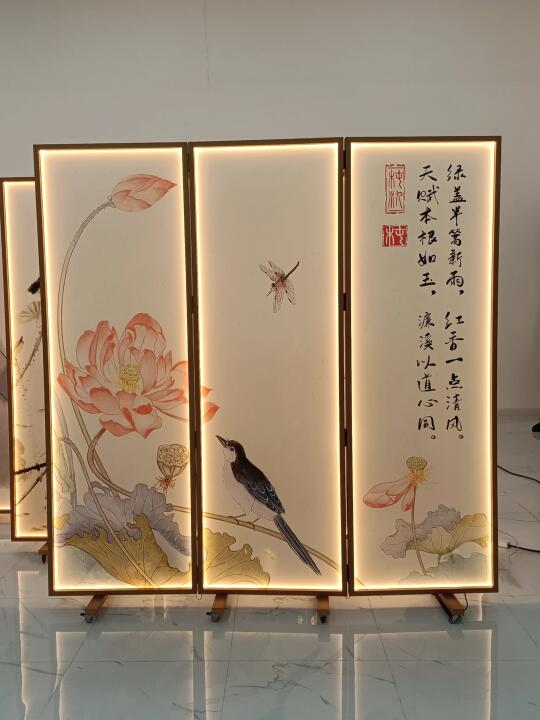 绿盖半篙新雨，红香一点清风。
天赋本根如玉，濂溪以道心同。